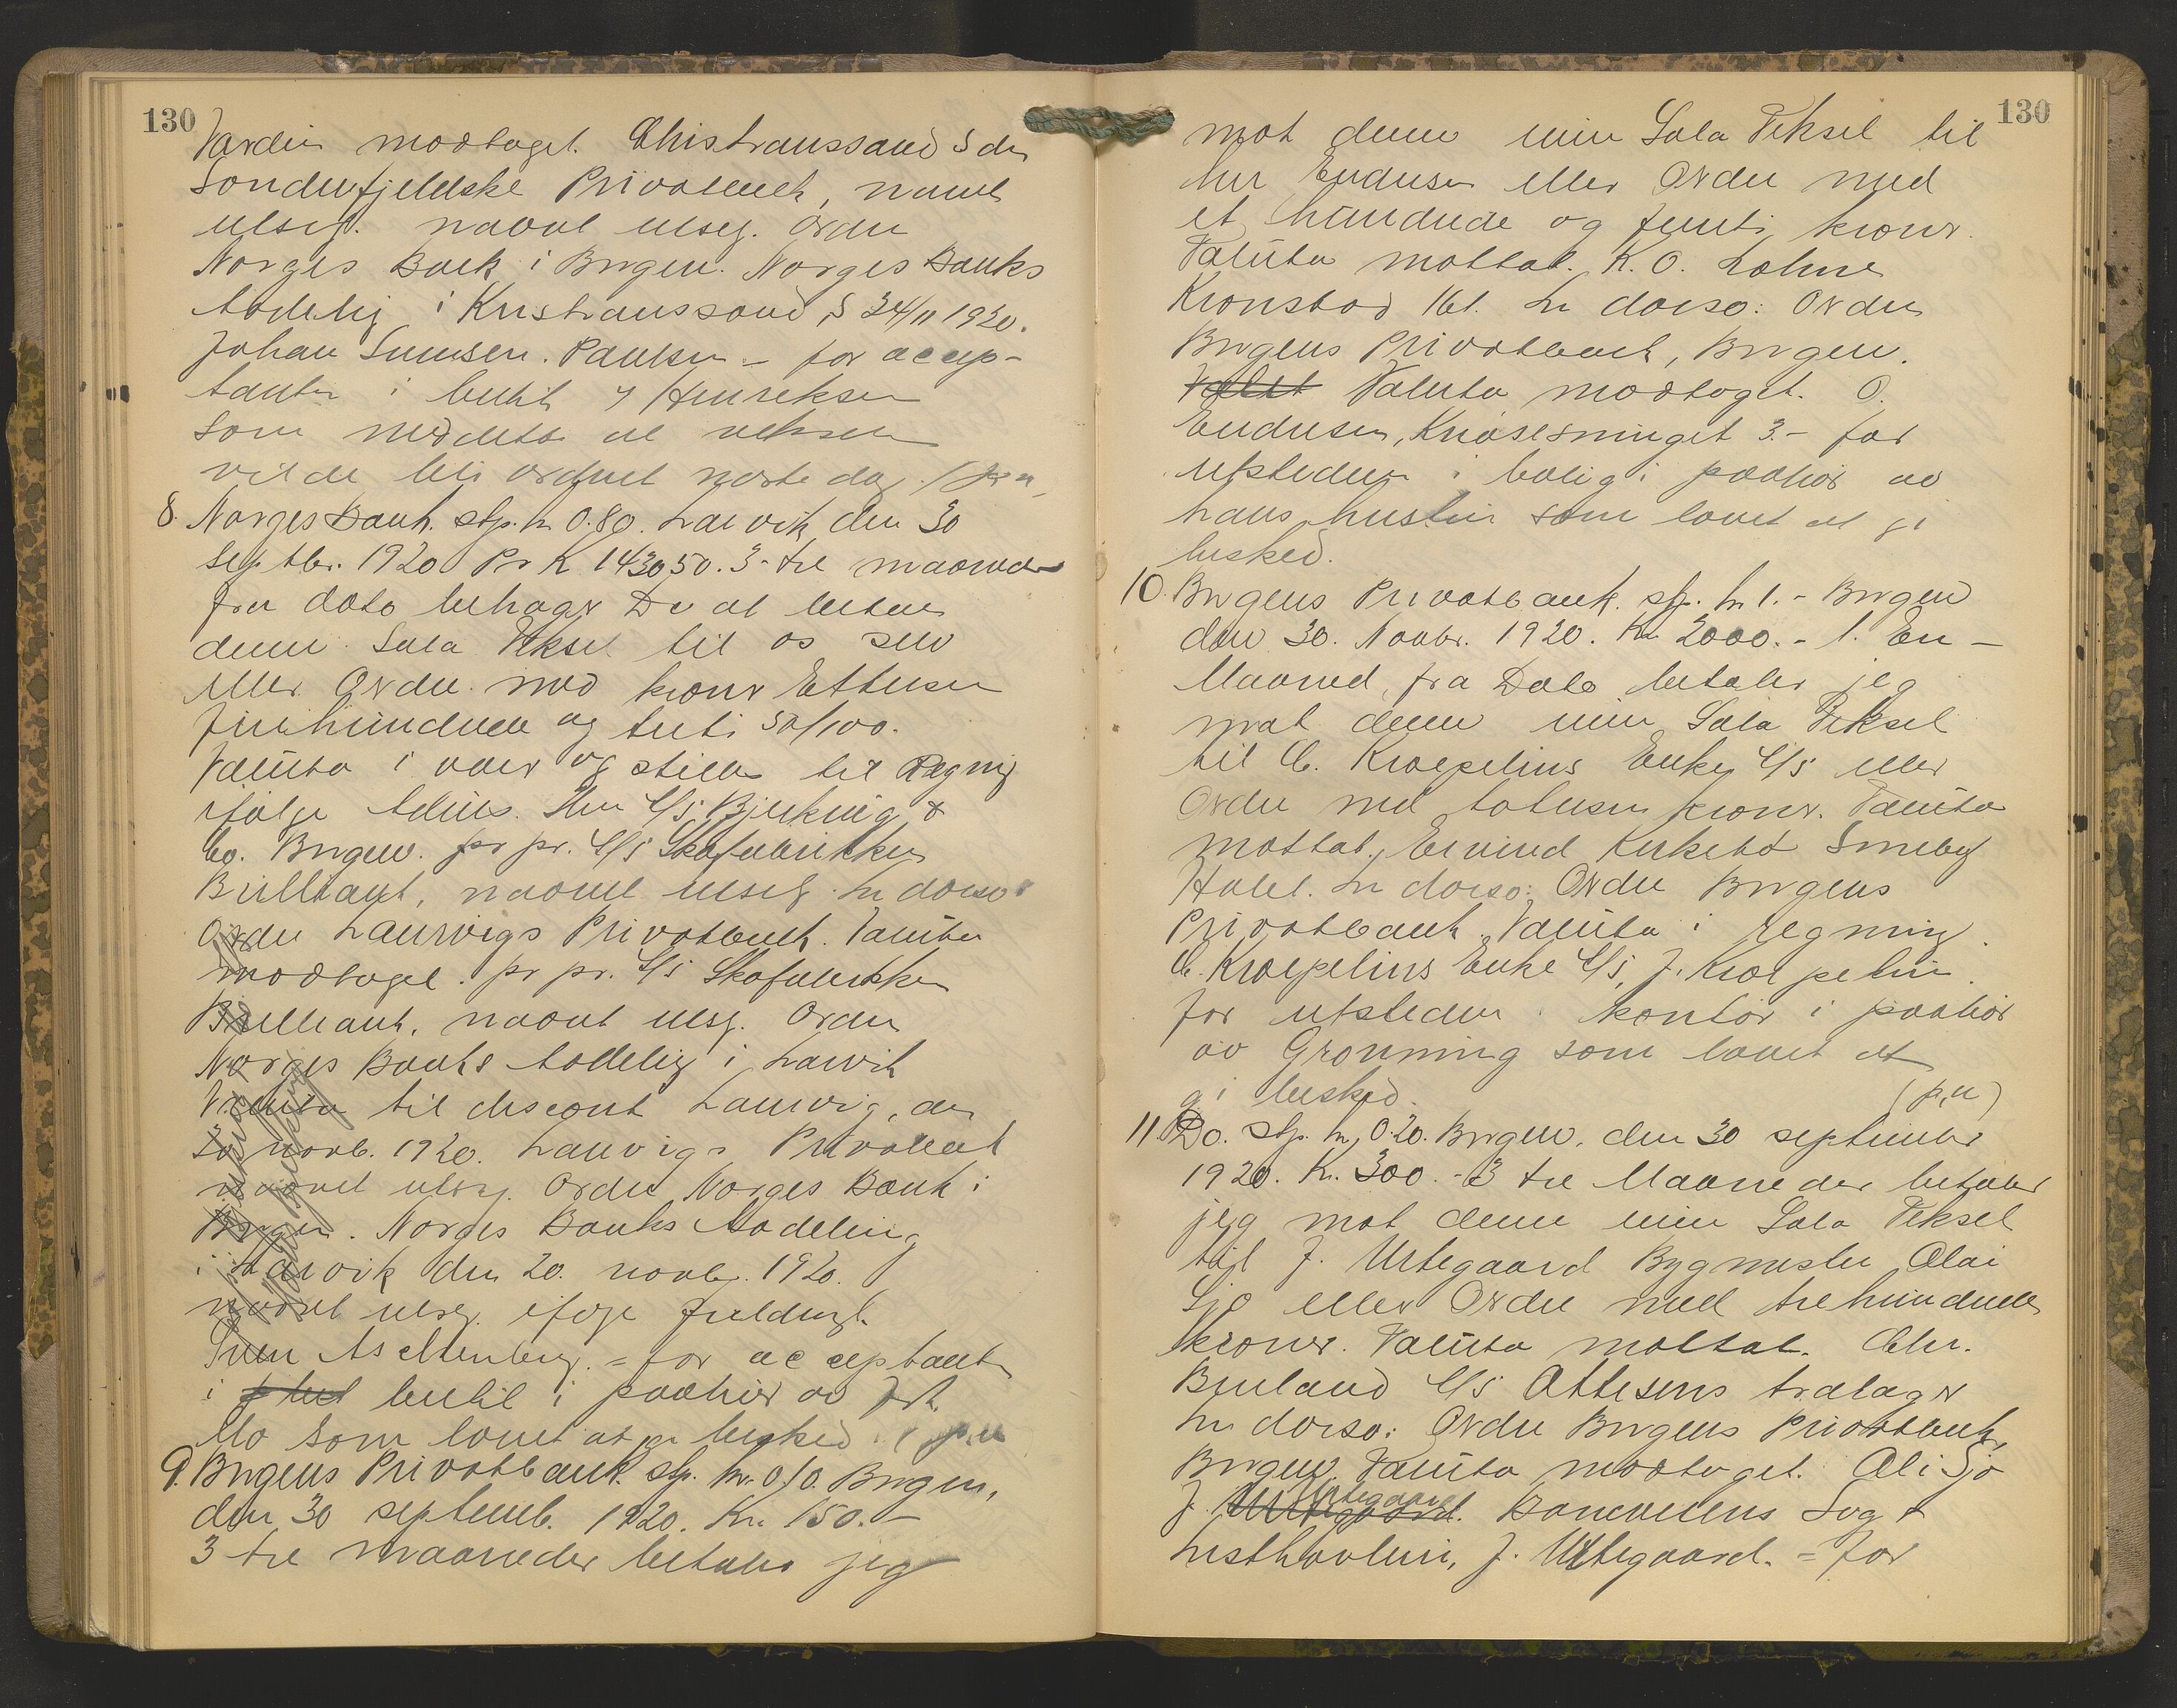 130
Værdien modtaget. Christianssand S den
Sønderfjeldske Privatbank, navnet
ulæs. navnet ulæs. Ordre
Norges Bank i Bergen. Norges Banks
Avdeling i Kristianssand S 24/11 1920.
Johan Simnsen. Paulsen = for accep-
tanten i butik Henriksen
som meddelte at vekselen
vilde bli ordnet næste dag. (p.u.
8. Norges Bank. stp. kr 0.80. Larvik, den 30
septbr. 1920 Pr K 1430 50. 3- tre maaneder
fra dato behager De at betale
denne Sola Veksel til os selv
eller Ordre med kroner Ettusen
firehundrede og treti 50/100.
Valuta i varer og stilles til Regning
ifølge Advis. Herr A/S Bjerking &
Co. Bergen. pr pr. A/S Skofabrikken
Brilliant, navnet ulæs. In dorso:
Ordre Laurvigs Privatbank. Valuta
modtaget. pr pr. A/S Skofabrikken
Brilliant, navnet ulæs. Ordre
Norges Banks Avdeling i Larvik
Valuta til discont Laurvig, den
20 novb. 1920. Laurvigs Privatbank
navnet ulæs. Ordre Norges Bank i
Bergen. Norges Banks Avdeling
i Larvik den 20. novbr. 1920.
navnet ulæs. ifølge fuldmgt.
Aschenberg. = for acceptanten
i butik i paahør av frk.
Mo som lovet at gi besked. (p.u
9. Bergens Privatbank. stp. kr. 0.10. Bergen,
den 30 septemb. 1920. Kr. 150.-
3 tre maaneder betaler jeg
130
mot denne min Sola Veksel til
herr Endresen eller Ordre med
et hundrede og femti kroner.
Valuta mottat. K. O. Lohne
Kronstad 16 1. In dorso: Ordre
Bergens Privatbank, Bergen.
Valut Valuta modtaget. O.
Endresen, 3.- for
utstederen i bolig i paahør av
hans hustru som lovet at gi
besked.
10. Bergens Privatbank. stp. kr 1.- Bergen
den 30. Novbr. 1920. Kr 2000.- 1. En -
Maaned fra Dato betaler jeg
mot denne min Sola Veksel
til C. Kroepelins Enke A/S eller
Ordre med totusen kroner. Valuta
mottat. Eivind Kirkebø Smeby
Hotel. In dorso: Ordre Bergens
Privatbank. Valuta i regning.
C. Kroepelins Enke A/S, J. Kroepelin
for utstederen kontor i paahør
av Grønning som lovet at
gi besked. (p.u)
11. Do. stp. kr 0.20. Bergen, den 30 september
1920. Kr. 300.- 3 tre Maaneder betaler
jeg mot denne min Sola Veksel
til J. Urtegaard Bygmester Olai
Sjo eller Ordre med trehundrede
kroner. Valuta mottat. Chr.
Birkeland A/S Ottesens trælager
In dorso: Ordre Bergens Privatbank,
Bergen. Valuta modtaget. Olai Sjo
J. Urtegaard. Sag &
Listhøvleri, J. Urtegaard. = for